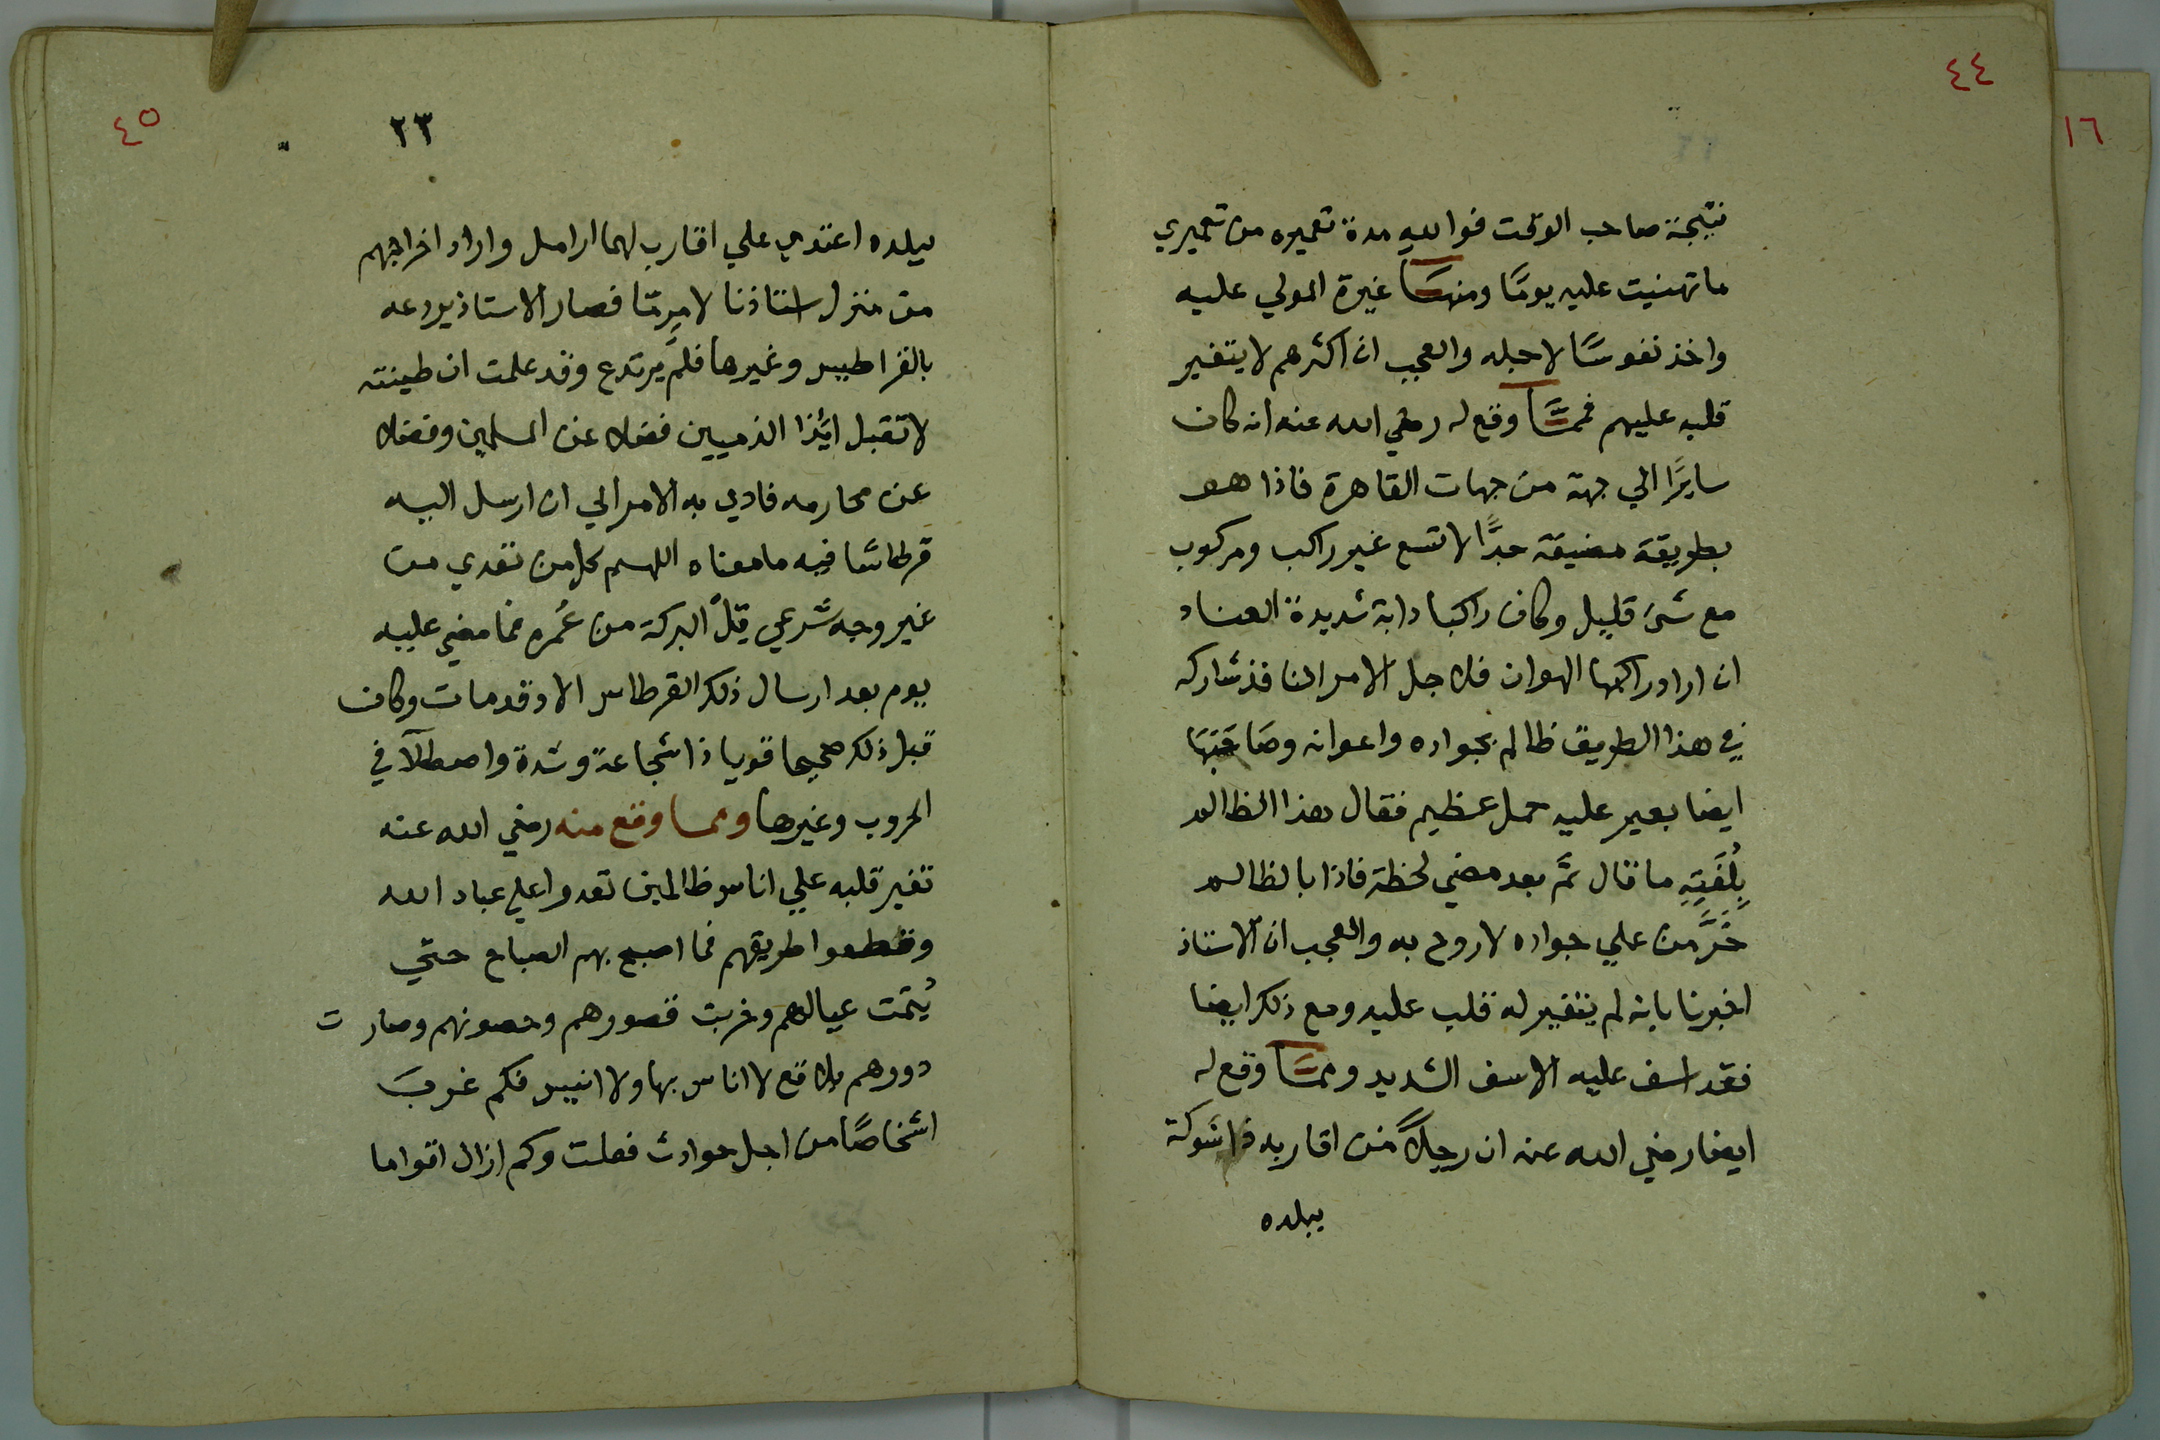 ٤٤
١٦
نتيجة صاحب الوقت فوالله مدة تعميره من تعميري
ما تهنيت عليه يومًا ومنها غيرة المولي عليه
واخذ نفوسًا لاجله والعجب ان اكثرهم لا يتغير
قلبه عليهم فمما وقع له رضي الله عنه انه كان
سايرًا الي جهة من جهات القاهرة فاذا هو
بطريقة مضيقة جدًّا لا تسع غير راكب ومركوب
مع شئ قليل وكان راكبا دابة شديدة العناد
ان اراد راكبها الهوان فلاجل الامر النافذ شاركه
في هذا الطريق ظالم بجواده واعوانه وصاحبها
ايضا بعير عليه حمل عظيم فقال هذا الظالم
بِلُغَتِهِ ما قال ثم بعد مضي لحظة فاذا بالظالم
خَرَّ من علي جواده لا روح به والعجب ان الاستاذ
اخبرنا بانه لم يتغير له قلب عليه ومع ذلك ايضا
فقد اسف عليه الاسف الشديد ومما وقع له
ايضا رضي الله عنه ان رجلاً من اقاربه ذا شوكة
ببلده
٤٥
٢٣
ببلده اعتدي علي اقارب لهما ارامل واراد اخراجهم
من منزل استاذنا لامرٍ مّا فصار الاستاذ يردعه
بالقراطيس وغيرها فلم يرتدع وقد علمت ان طينته
لا تقبل ايذا الذميين فضلا عن المسلمين وفضلا
عن محارمه فادي به الامر الي ان ارسل اليه
قرطاسا فيه ما معناه اللهم كل من تعدي من
غير وجه شرعي قِلّ البركة من عُمره فما مضي عليه
يوم بعد ارسال ذلك القرطاس الا وقد مات وكان
قبل ذلك صحيحا قويا ذا شجاعة وشدة واصطلآ في
الحروب وغيرها ومما وقع منه رضي الله عنه
تغير قلبه علي اناس ظالمين تعدوا علي عباد الله
وقطعوا طريقهم فما اصبح بهم الصباح حتي
يُتمت عيالهم وخربت قصورهم وحصونهم وصار ت
دورهم بلاقع لا اناس بها ولا انيس فكم غرب
اشخاصًا من اجل حوادث فعلت وكم ازال اقواما